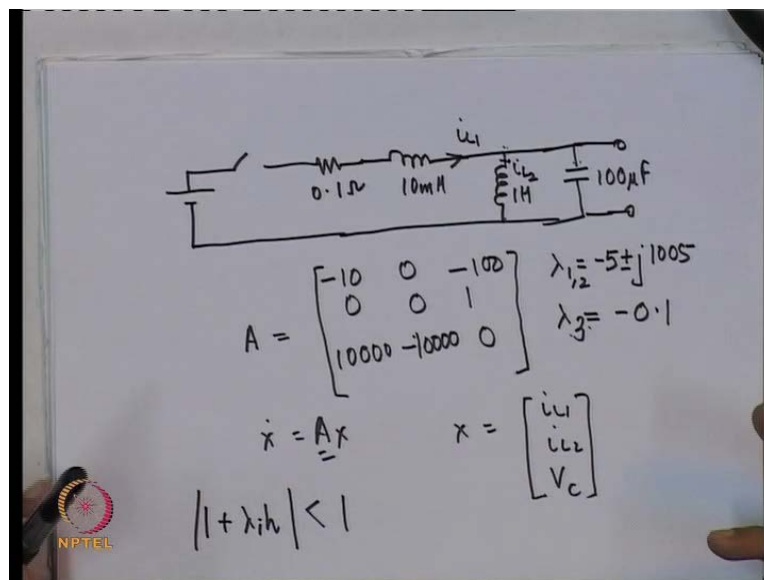 i_{L1}
0.1Ω 10mH i_{L2} 1H 100μF
A = [-10 0 -100; 0 0 1; 10000 -10000 0]
λ_{1,2} = -5 ± j1005
λ_3 = -0.1
ẋ = Ax x = [i_{L1}; i_{L2}; V_C]
|1 + λ_i h| < 1
NPTEL